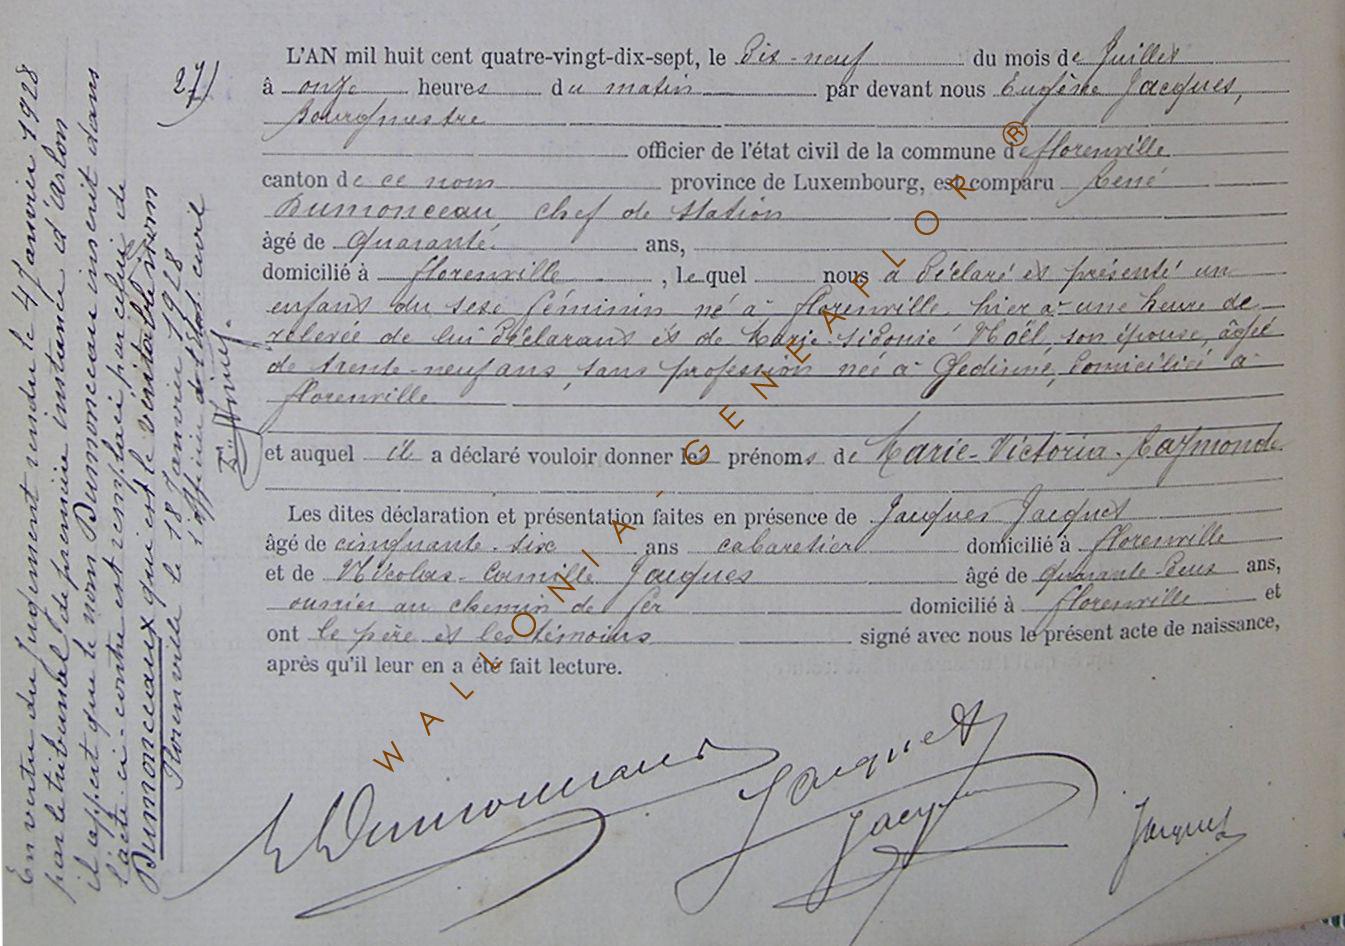 27)
L'AN mil huit cent quatre-vingt-dix-sept, le Dix-neuf du mois de Juillet
à onze heures du matin par devant nous Eugène Jacques,
Bourgmestre
officier de l'état civil de la commune de florenville
canton de ce nom province de Luxembourg, est comparu René
Dumonceau chef de station
âgé de quarante ans,
domicilié à florenville, lequel nous a Déclaré et présenté un
enfant du sexe féminin né à florenville hier à une heure de
relevée de lui Déclarant et de Marie-Sidonie Noël, son épouse, âgée
de trente-neuf ans, sans profession née à Gedinne, Domiciliée à
florenville
et auquel il a déclaré vouloir donner les prénoms de Marie-Victoria-Raymonde
Les dites déclaration et présentation faites en présence de Jacques Jacquet
âgé de cinquante-six ans cabaretier domicilié à florenville
et de Nicolas-Camille Jacques âgé de quarante-Deux ans,
ouvrier au chemin de fer domicilié à florenville et
ont le père et les témoins signé avec nous le présent acte de naissance,
après qu'il leur en a été fait lecture.
Jacquet
Jacques
Jacques
En vertu du jugement rendu le 4 janvier 1928
par le tribunal de première instance d'Arlon
il appert que le nom Dumonceau inscrit dans
l'acte ci-contre est remplacé par celui de
Dumonceaux qui est le véritable nom
Florenville le 18 janvier 1928
l'officier de l'état civil
WALLONIA-GENEAFLOR®